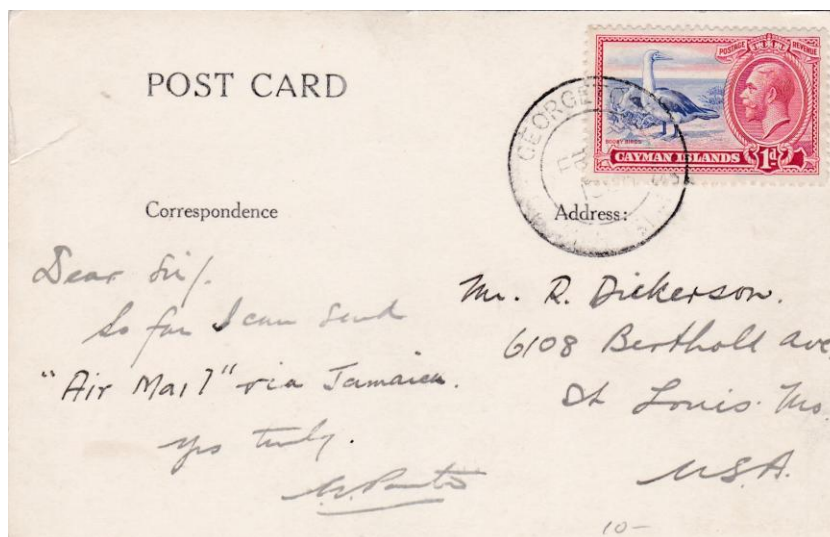 POST CARD
POSTAGE REVENUE
BOOBY BIRDS
CAYMAN ISLANDS 1d
GEORGETOWN
Correspondence
Address:
Dear Sir/.
So far I can send
"Air Mail" via Jamaica.
Yrs truly.
Mr. R. Dickerson.
6108 Berthold Ave
St Louis Mo.
USA.
10-